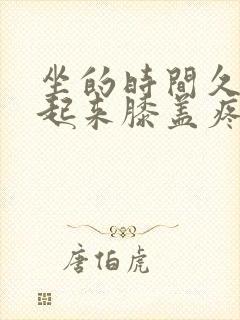 坐的時間久
起来膝盖疼
唐伯虎